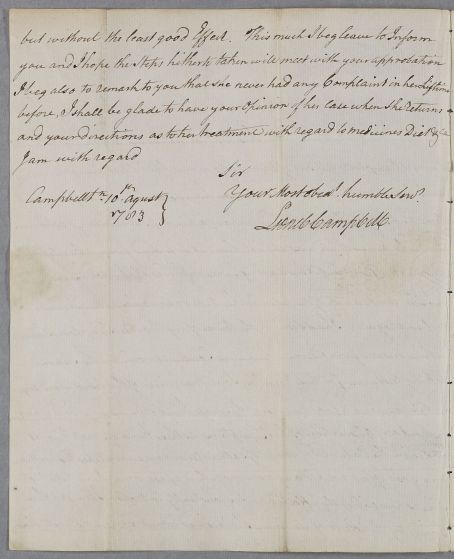 but without the least good Effect. This much I beg leave to Inform
you and I hope the Steps hitherto taken will meet with your approbation
I beg also to remark to you that she never had any Complaint in her
before, I shall be glade to have your Opinion of her Case when she returns
and your directions as to her treatment with regard to medicines Diet &ca
I am with regard
Sir
Your Most obedt. humble Servt.
Campbelltn. 10th. agust
1783
Campbell